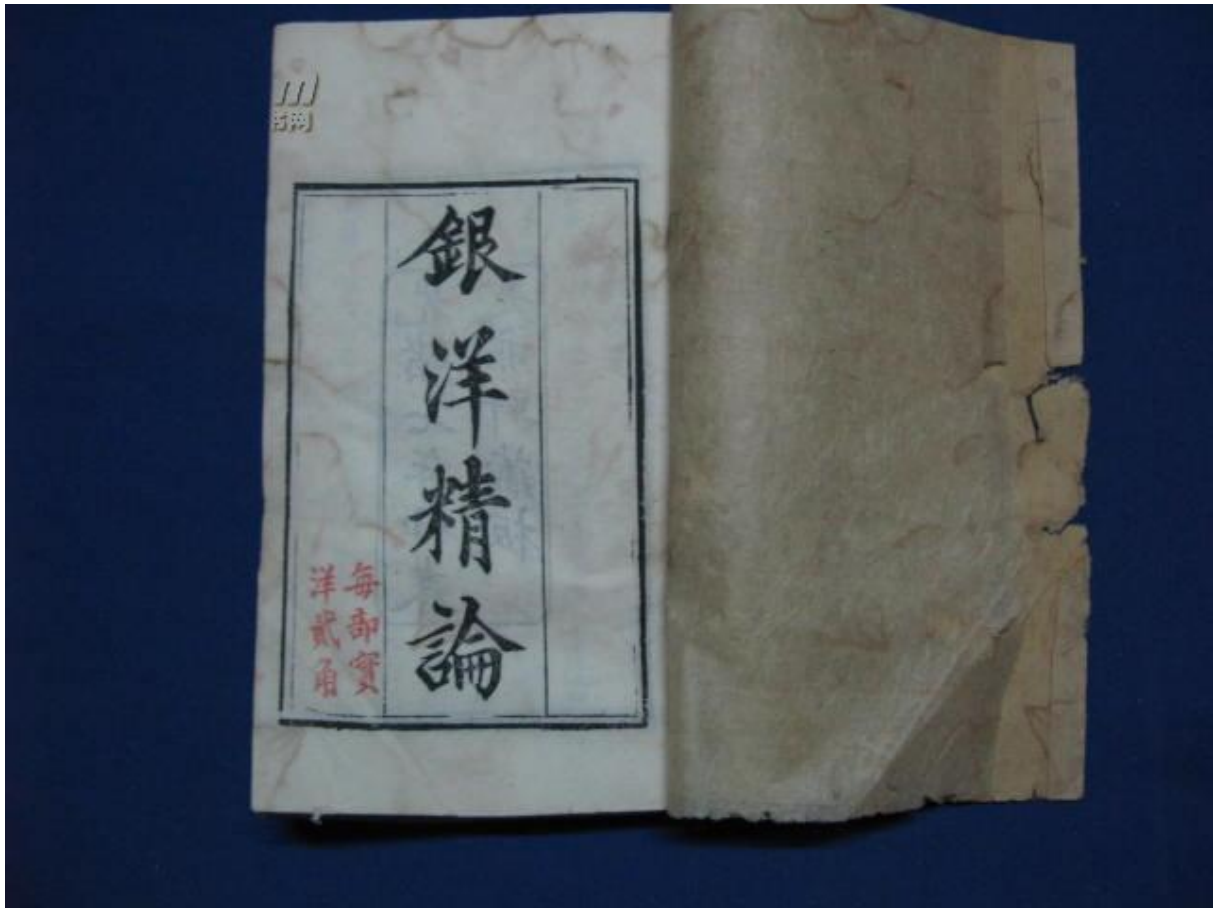 銀洋精論
每部實
洋貳角